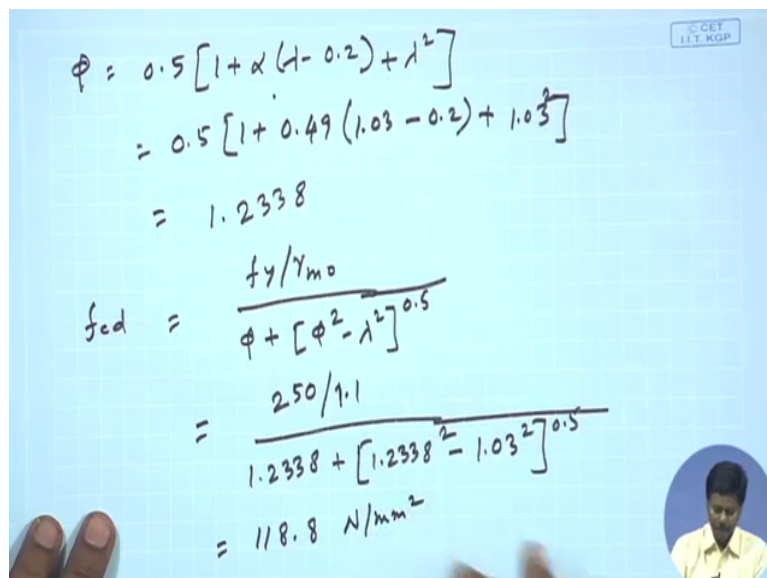 © CET
I.I.T. KGP
φ = 0.5 [1 + α (λ - 0.2) + λ²]
= 0.5 [1 + 0.49 (1.03 - 0.2) + 1.03²]
= 1.2338
fcd = fy/γmo / φ + [φ² - λ²]^0.5
= 250/1.1 / 1.2338 + [1.2338² - 1.03²]^0.5
= 118.8 N/mm²